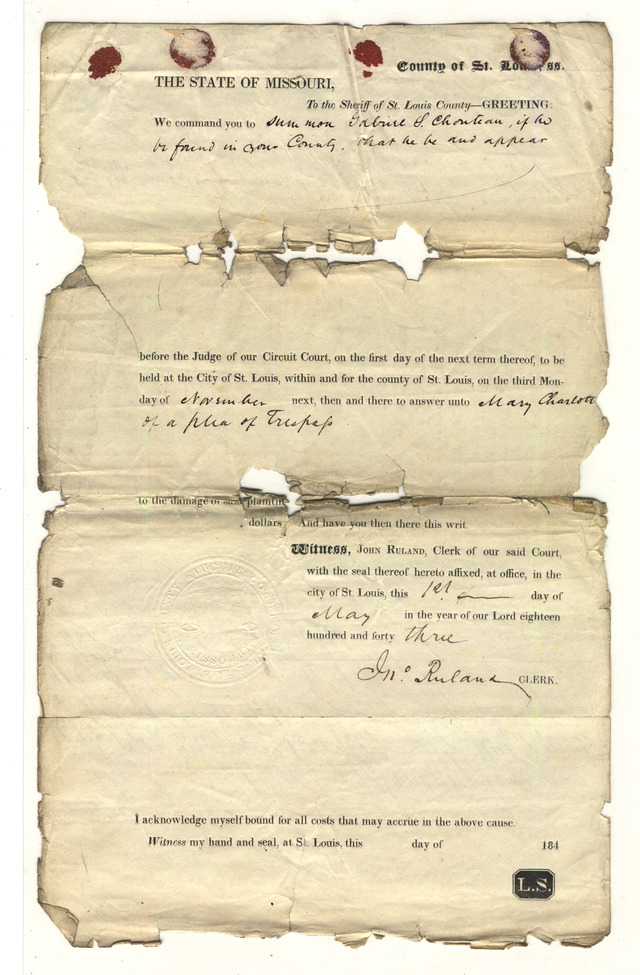 County of St. Louis, ss.
THE STATE OF MISSOURI,
To the Sheriff of St. Louis County—GREETING:
We command you to summon Gabriel S. Chouteau, if he
be found in your County, that he be and appear
before the Judge of our Circuit Court, on the first day of the next term thereof, to be
held at the City of St. Louis, within and for the county of St. Louis, on the third Mon-
day of November next, then and there to answer unto Mary Charlotte
of a plea of Trespass
to the damage of said plaintiff
dollars, And have you then there this writ.
Witness, JOHN RULAND, Clerk of our said Court,
with the seal thereof hereto affixed, at office, in the
city of St. Louis, this 1st day of
May in the year of our Lord eighteen
hundred and forty three
Jno. Ruland CLERK.
I acknowledge myself bound for all costs that may accrue in the above cause.
Witness my hand and seal, at St. Louis, this day of 184
L.S.